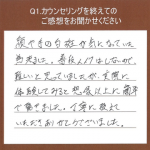 Q1.カウンセリングを終えての
ご感想をお聞かせください
顔やせの自信が気になっていた
難しいと思っていましたが、実際に
体験してみると想像以上に簡単
で驚きました。丁寧に教えて
いただきありがとうございました。